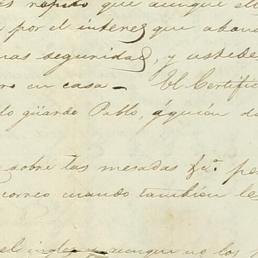 repito que aunque el
por el interez que abon
mas seguridad, y ustede
ro en casa - El Certific
lo güarde Pablo, á quien d
sobre las mesadas &ª. pe
correo cuando tambien le
aunque no los